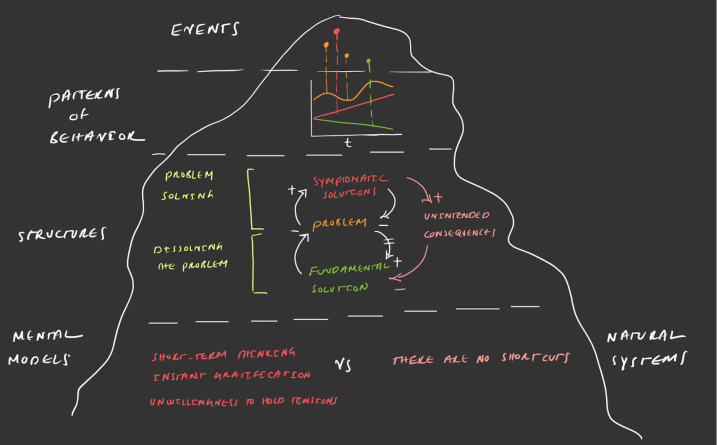 EVENTS
PATTERNS
OF
BEHAVIOR
t
PROBLEM
SOLVING
+
SYMPTOMATIC
SOLUTIONS
+
UNINTENDED
CONSEQUENCES
- PROBLEM -
STRUCTURES
DISSOLVING
THE PROBLEM
+
FUNDAMENTAL
SOLUTION
-
MENTAL
MODELS
NATURAL
SYSTEMS
SHORT-TERM THINKING
INSTANT GRATIFICATION
UNWILLINGNESS TO HOLD TENSIONS
VS
THERE ARE NO SHORTCUTS